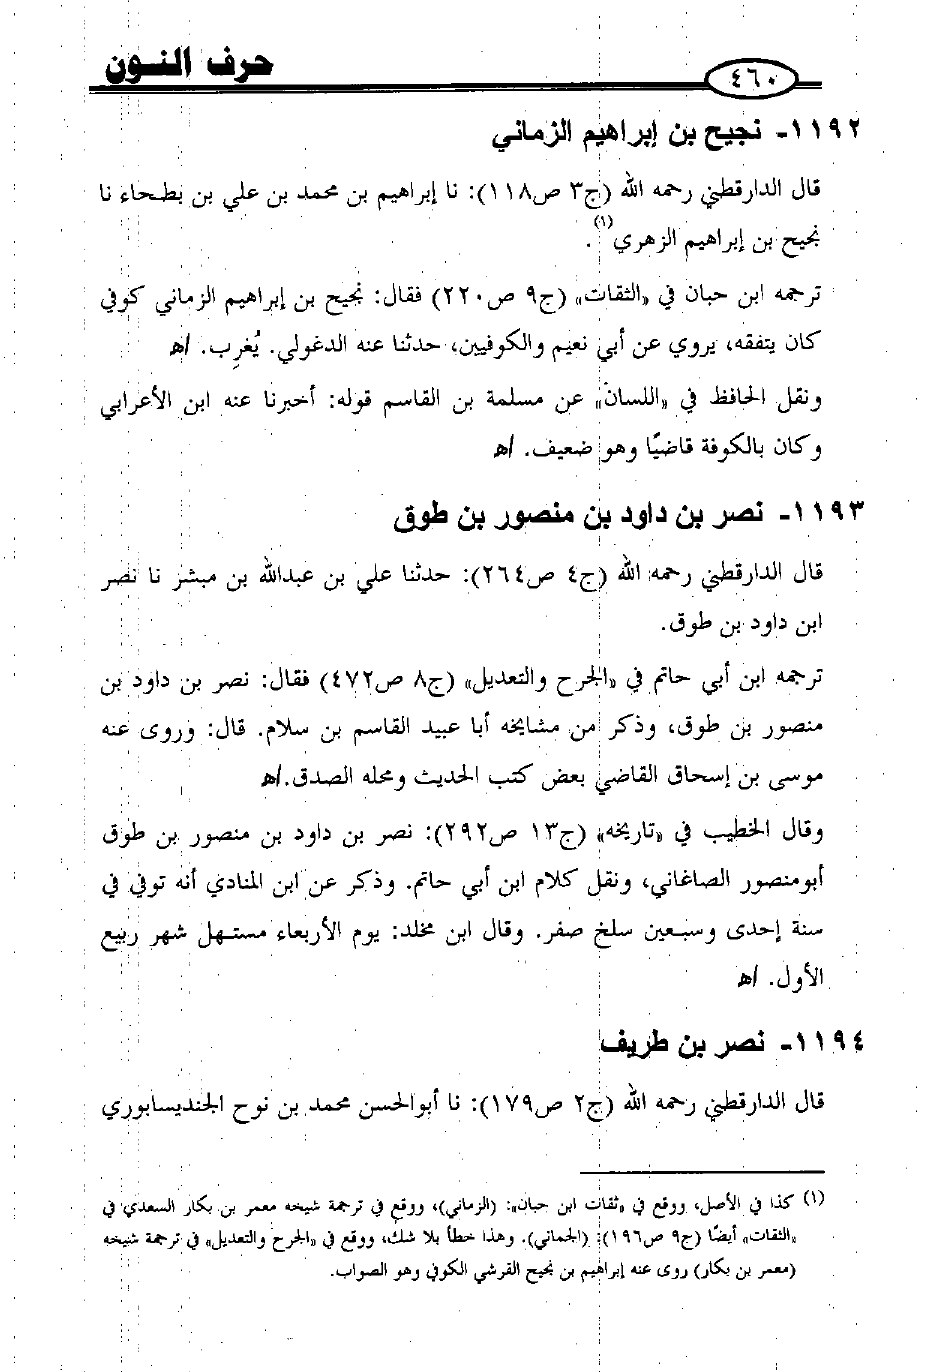 حرف النـون
٤٦٠
١١٩٢- نجيح بن إبراهيم الزماني
قال الدارقطني رحمه الله (ج٣ ص١١٨): نا إبراهيم بن محمد بن علي بن بطحاء نا
نجيح بن إبراهيم الزهري(١).
ترجمه ابن حبان في «الثقات» (ج٩ ص٢٢٠) فقال: نجيح بن إبراهيم الزماني كوفي
كان يتفقه، يروي عن أبي نعيم والكوفيين، حدثنا عنه الدغولي. يُغرِب. اهـ
ونقل الحافظ في «اللسان» عن مسلمة بن القاسم قوله: أخبرنا عنه ابن الأعرابي
وكان بالكوفة قاضيًا وهو ضعيف. اهـ
١١٩٣- نصر بن داود بن منصور بن طوق
قال الدارقطني رحمه الله (ج٤ ص٢٦٤): حدثنا علي بن عبدالله بن مبشر نا نصر
ابن داود بن طوق.
ترجمه ابن أبي حاتم في «الجرح والتعديل» (ج٨ ص٤٧٢) فقال: نصر بن داود بن
منصور بن طوق، وذكر من مشايخه أبا عبيد القاسم بن سلام. قال: وروى عنه
موسى بن إسحاق القاضي بعض كتب الحديث ومحله الصدق.اهـ
وقال الخطيب في «تاريخه» (ج١٣ ص٢٩٢): نصر بن داود بن منصور بن طوق
أبومنصور الصاغاني، ونقل كلام ابن أبي حاتم. وذكر عن ابن المنادي أنه توفي في
سنة إحدى وسبعين سلخ صفر. وقال ابن مخلد: يوم الأربعاء مستهل شهر ربيع
الأول. اهـ
١١٩٤- نصر بن طريف
قال الدارقطني رحمه الله (ج٢ ص١٧٩): نا أبوالحسن محمد بن نوح الجنديسابوري
(١) كذا في الأصل، ووقع في «ثقات ابن حبان»: (الزماني)، ووقع في ترجمة شيخه معمر بن بكار السعدي في
«الثقات» أيضًا (ج٩ ص١٩٦): (الجماني). وهذا خطأ بلا شك، ووقع في «الجرح والتعديل» في ترجمة شيخه
(معمر بن بكار) روى عنه إبراهيم بن نجيح القرشي الكوفي وهو الصواب.